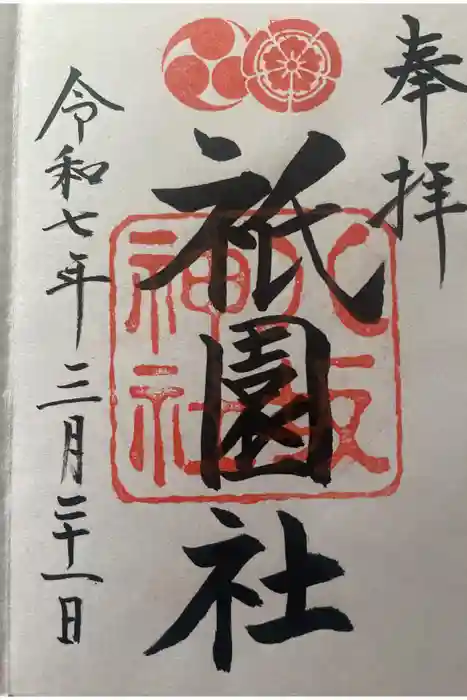 奉拝
祇園社
八坂
神社
令和七年三月二十一日